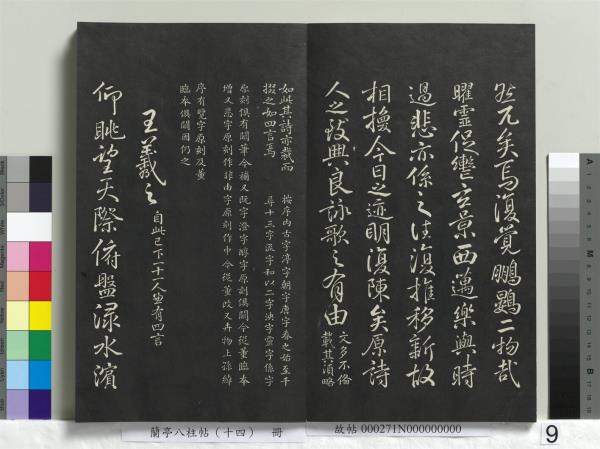 然兀矣焉復覺鵬鷃二物哉
曜靈促轡玄景西邁樂與時
過悲亦係之往復推移新故
相換今日之迹明復陳矣原詩
人之致興良詠歌之有由文多不備
載其須略
如此其詩亦裁而
掇之如四言焉
按序內古字滓字朝字唐字春之始至千
尋十三字泯字和以二字泱字靈字係字
原刻俱有闕筆今補又既字澄字醇字原刻俱闕今從董臨本
增又忌字原刻作非由字原刻作中今從董改又弁物上孫綽
序有覽字原刻及董
臨本俱闕因仍之
王羲之自此已下十一人並有四言
仰眺望天際俯盤淥水濱
蘭亭八柱帖(十四) 冊
故帖 000271N000000000
9